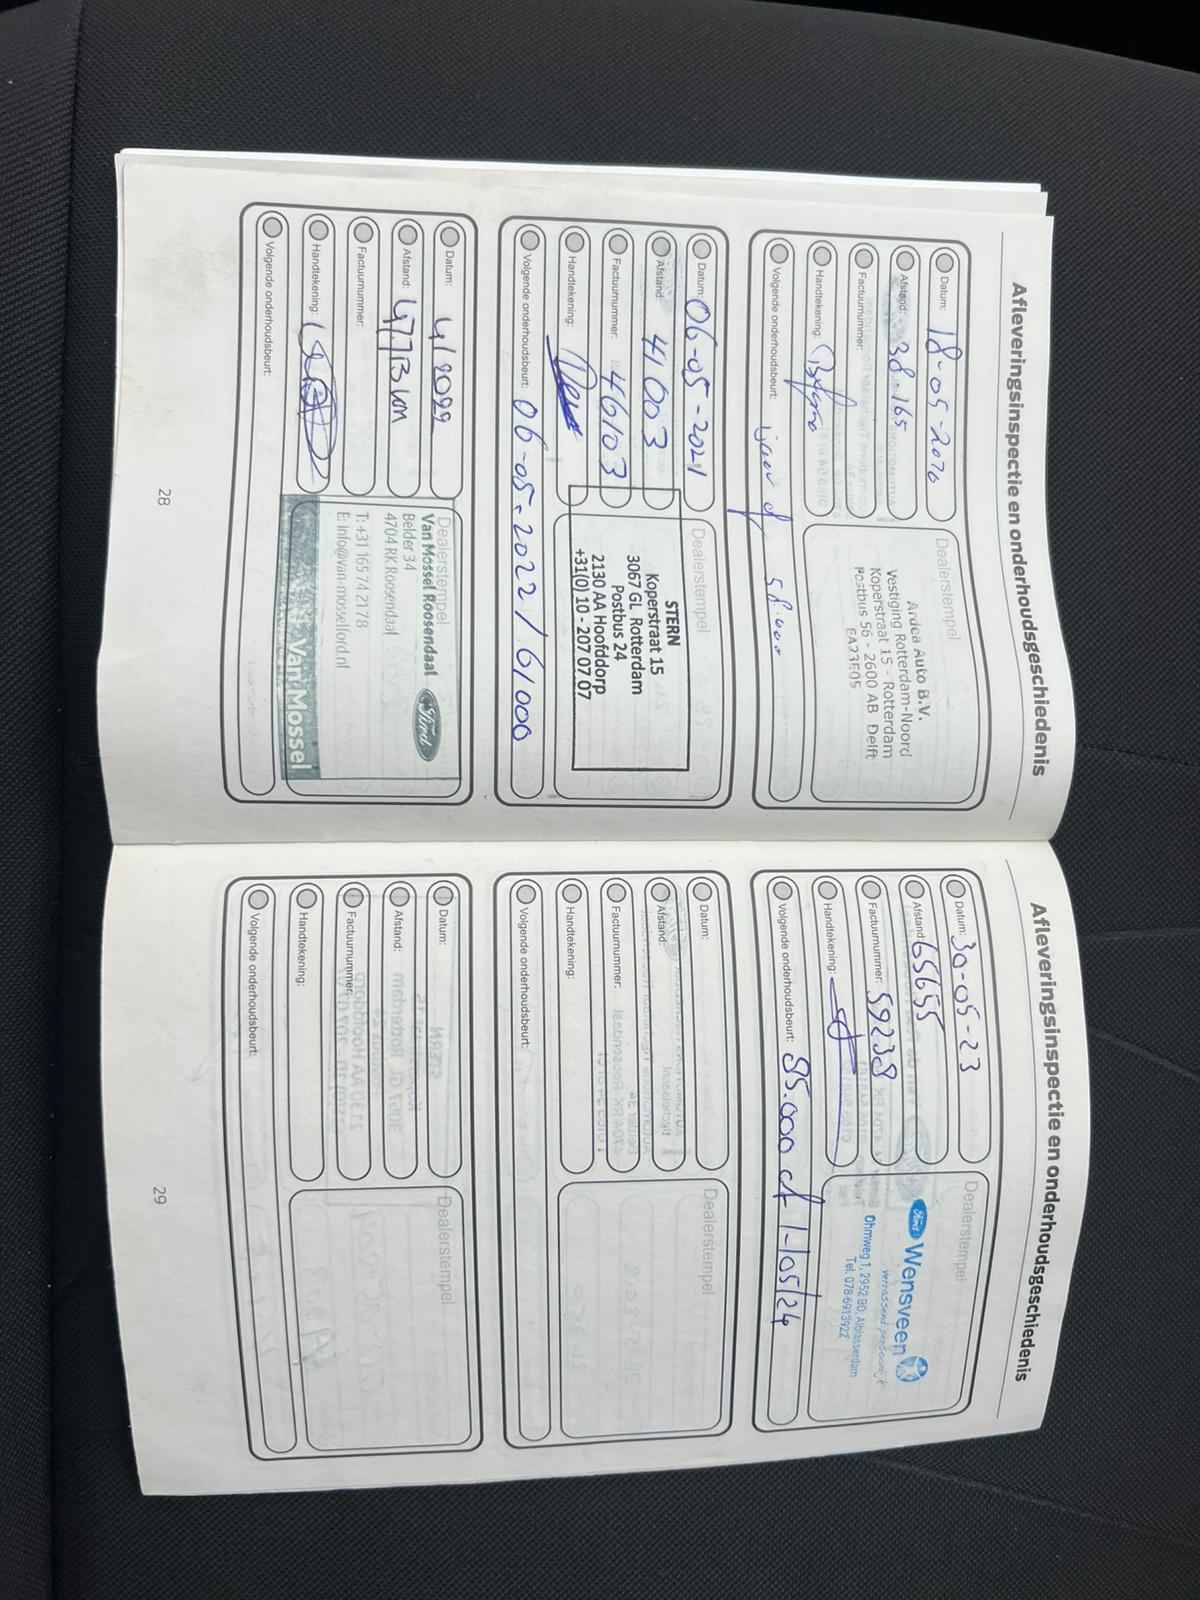 Afleveringsinspectie en onderhoudsgeschiedenis
Datum: 18-05-2020
Afstand: 38.165
Factuurnummer:
Handtekening:
Volgende onderhoudsbeurt: 58.000
Dealerstempel
Ardea Auto B.V.
Vestiging Rotterdam-Noord
Koperstraat 15 - Rotterdam
Postbus 56 - 2600 AB Delft
Datum: 06-05-2021
Afstand: 41003
Factuurnummer: 46103
Handtekening:
Volgende onderhoudsbeurt: 06-05-2022 / 61000
Dealerstempel
STERN
Koperstraat 15
3067 GL Rotterdam
Postbus 24
2130 AA Hoofddorp
+31(0) 10 - 207 07 07
Datum: 4/2022
Afstand: 47713 km
Factuurnummer:
Handtekening:
Volgende onderhoudsbeurt:
Dealerstempel
Van Mossel Roosendaal
Ford
Belder 34
4704 RK Roosendaal
T: +31 165 74 21 78
E: info@van-mosselford.nl
Van Mossel
28
Afleveringsinspectie en onderhoudsgeschiedenis
Datum: 30-05-23
Afstand: 65655
Factuurnummer: 59238
Handtekening:
Volgende onderhoudsbeurt: 85.000 of 1-/05/24
Dealerstempel
Ford Wensveen
verrassend persoonlijk
Ohmweg 1, 2952 BD, Alblasserdam
Tel. 078-6913922
Datum:
Afstand:
Factuurnummer:
Handtekening:
Volgende onderhoudsbeurt:
Dealerstempel
Datum:
Afstand:
Factuurnummer:
Handtekening:
Volgende onderhoudsbeurt:
Dealerstempel
29